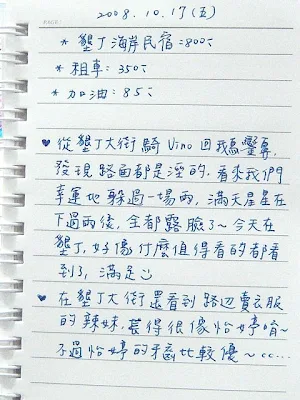 2008.10.17(五)
* 墾丁海岸民宿:800元
* 租車:350元
* 加油:85元
♥ 從墾丁大街騎Vino回鵝鑾鼻,
發現路面都是溼的,看來我們
幸運地躲過一場雨,滿天星星在
下過雨後,全都露臉了~今天在
墾丁,好像什麼值得看的都看
到了,滿足
♥ 在墾丁大街還看到路边賣衣服
的辣妹,長得很像怡婷唷~
不過怡婷的牙齒比較優~cc...